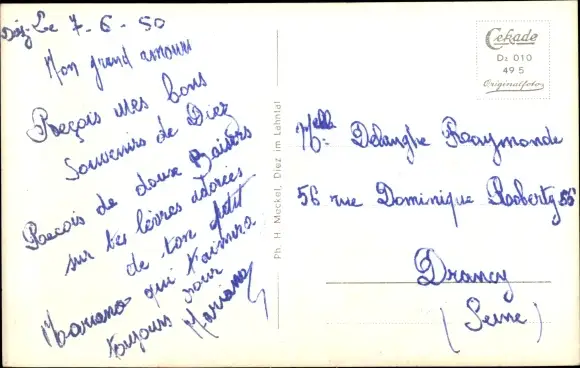 Diez Le 7-6-50
Mon grand amour
Reçois mes bons
Souvenirs de Diez
Recois de doux Baisers
sur tes lèvres adorées
de ton petit
Mariano qui t'aimera
toujours pour
Mariano
Ph. H. Meckel, Diez im Lahntal
Cekade
Dz 010
49 5
Originalfoto
Melle Delanghe Raymonde
56 rue Dominique Roberty 56
Drancy
(Seine)